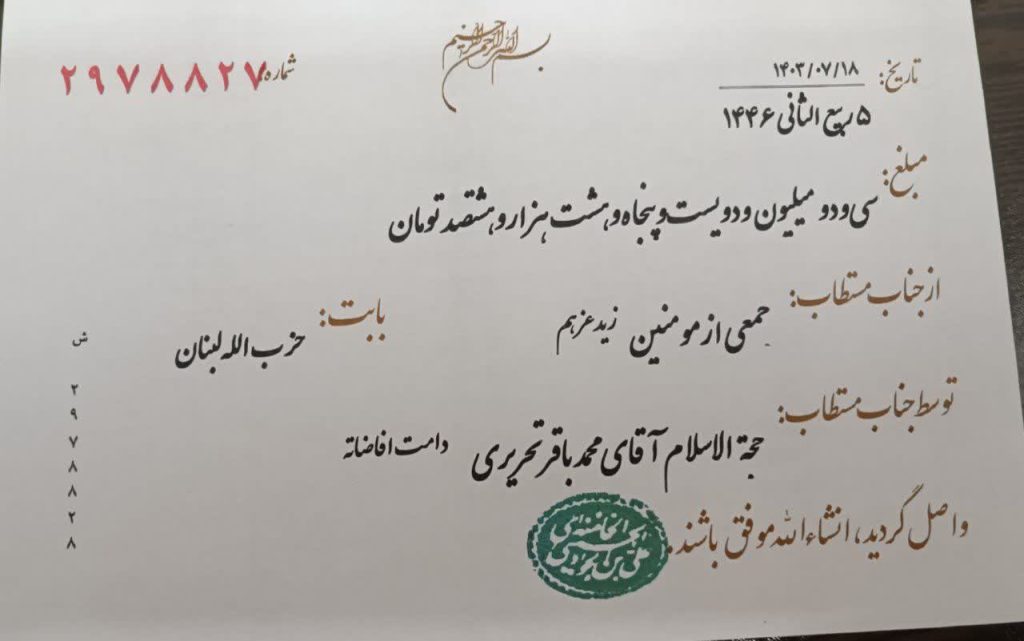 بسم الله الرحمن الرحیم
شماره: ۲۹۷۸۸۲۷
تاریخ: ۱۴۰۳/۰۷/۱۸
۵ ربیع الثانی ۱۴۴۶
مبلغ: سی و دو میلیون و دویست و پنجاه و هشت هزار و هشتصد تومان
از جناب مستطاب: جمعی از مومنین زید عزهم
بابت: حزب الله لبنان
توسط جناب مستطاب: حجة الاسلام آقای محمد باقر تحریری دامت افاضاته
واصل گردید، انشاءالله موفق باشند.
ش
۲
۹
۷
۸
۸
۲
۸